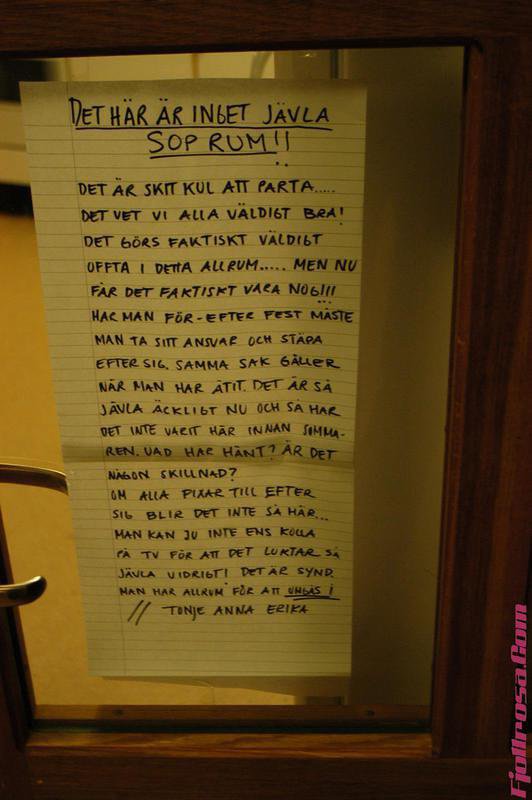 DET HÄR ÄR INGET JÄVLA
SOP RUM!!
DET ÄR SKIT KUL ATT PARTA.....
DET VET VI ALLA VÄLDIGT BRA!
DET GÖRS FAKTISKT VÄLDIGT
OFFTA I DETTA ALLRUM..... MEN NU
FÅR DET FAKTISKT VARA NOG!!!
HAR MAN FÖR-EFTER FEST MÅSTE
MAN TA SITT ANSVAR OCH STÄDA
EFTER SIG. SAMMA SAK GÄLLER
NÄR MAN HAR ÄTIT. DET ÄR SÅ
JÄVLA ÄCKLIGT NU OCH SÅ HAR
DET INTE VARIT HÄR INNAN SOMMA-
REN. VAD HAR HÄNT? ÄR DET
NÅGON SKILLNAD?
OM ALLA PIXAR TILL EFTER
SIG BLIR DET INTE SÅ HÄR...
MAN KAN JU INTE ENS KOLLA
PÅ TV FÖR ATT DET LUKTAR SÅ
JÄVLA VIDRIGT! DET ÄR SYND.
MAN HAR ALLRUM FÖR ATT UMGÅS I
// TONJE ANNA ERIKA
Fjollrosa.Com